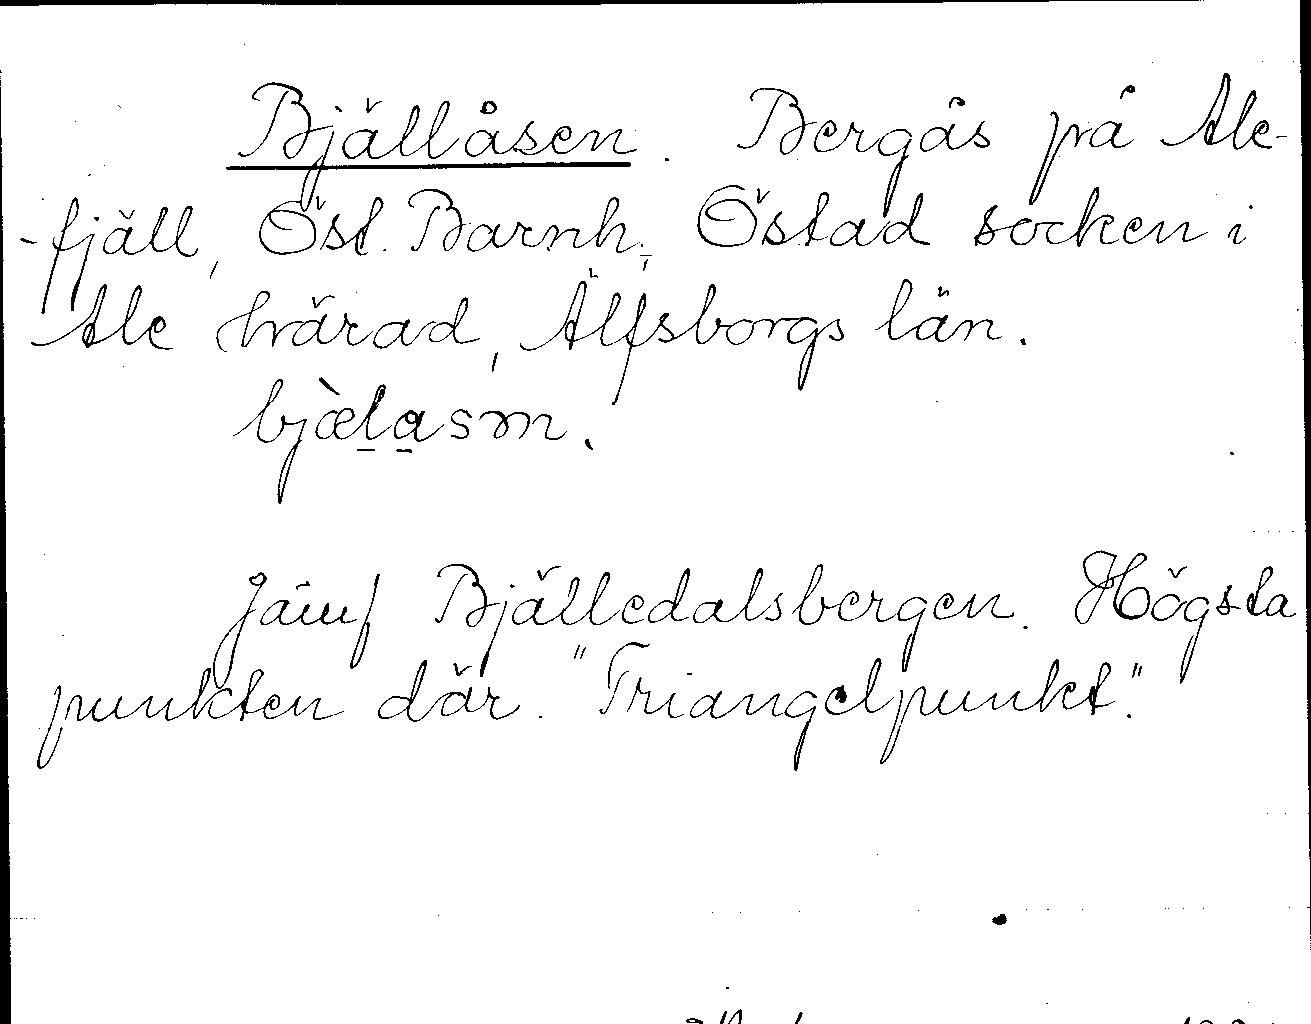 Bjällåsen. Bergås på Ale-
-fjäll, Öst. Barnh., Östad socken i
Ale härad, Älfsborgs län.
bjæ̀lasm.
Jämf Bjälledalsbergen. Högsta
punkten där. "Triangelpunkt".